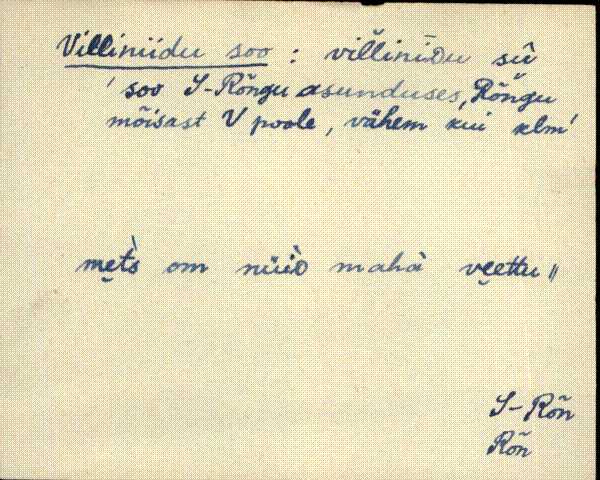 Villiniidu soo : villiniDu sū̂
' soo S-Rõngu asunduses, Rõngu
mõisast V poole, vähem kui klm'
mets̀ om nüiD mahà veettu "
S-Rõn
Rõn